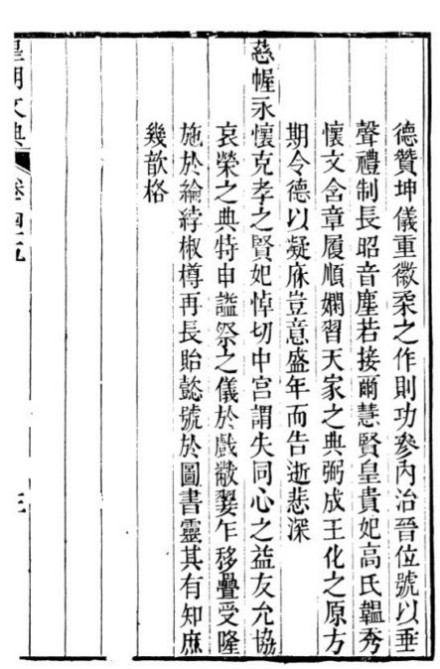 德贊坤儀重徽柔之作則功參內治晉位號以垂
聲禮制長昭音塵若接爾慧賢皇貴妃高氏韞秀
懷文含章履順嫻習天家之典弼成王化之原方
期令德以凝庥豈意盛年而告逝悲深
慈幄永懷克孝之賢妃悼切中宮謂失同心之益友允協
哀榮之典特申諡祭之儀於戲黻翣乍移罍受隆
施於綸綍椒樽再長貽懿號於圖書靈其有知庶
幾歆格
皇朝文典 卷四五
三